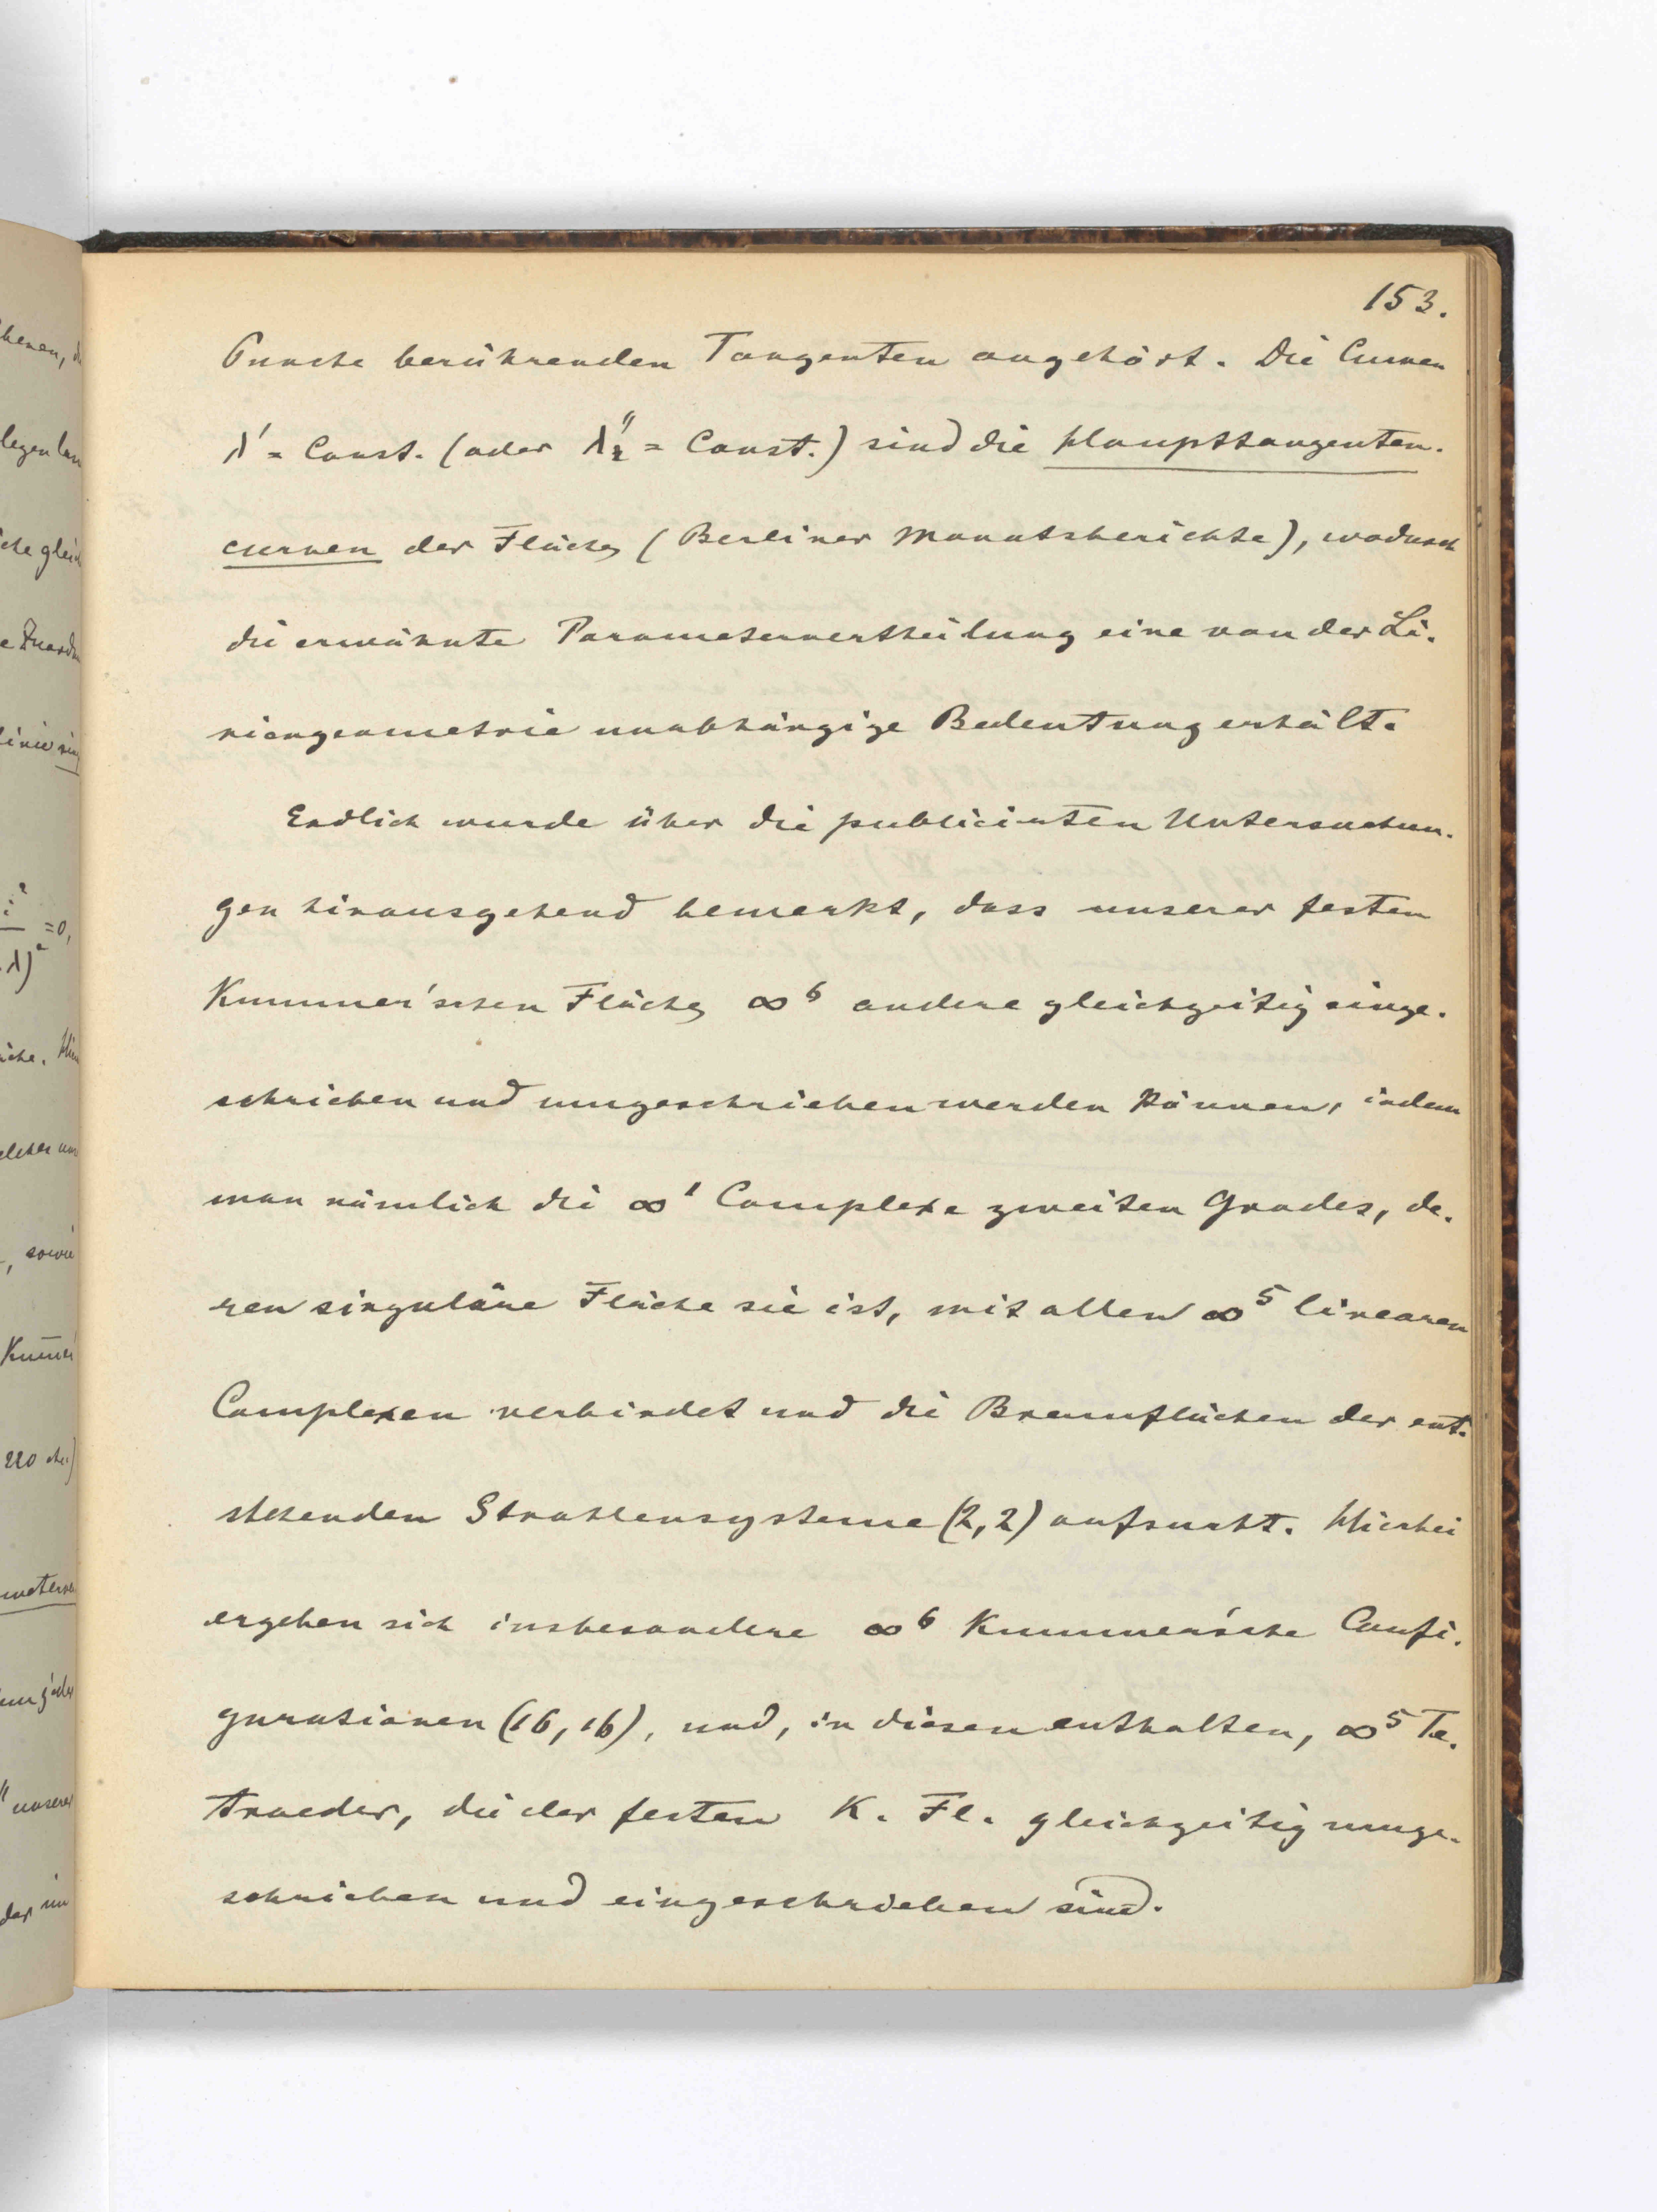 153.
Puncte berührenden Tangenten angehört. Die Curven
λ' = Const. (oder λ'' = Const.) sind die Haupttangenten-
curven der Fläche (Berliner Monatsberichte), wodurch
die erwähnte Parametervertheilung eine von der Li-
niengeometrie unabhängige Bedeutung erhält.
Endlich wurde über die publicirten Untersuchun-
gen hinausgehend bemerkt, dass unserer festen
Kummer'schen Fläche ∞⁶ andere gleichzeitig einge-
schrieben und umgeschrieben werden können, indem
man nämlich die ∞¹ Complexe zweiten Grades, de-
ren singuläre Fläche sie ist, mit allen ∞⁵ linearen
Complexen verbindet und die Brennflächen der ent-
stehenden Strahlensysteme (2,2) aufsucht. Hierbei
ergeben sich insbesondere ∞⁶ Kummer'sche Confi-
gurationen (16,16), und, in diesen enthalten, ∞⁵ Te-
traeder, die der festen K. Fl. gleichzeitig umge-
schrieben und eingeschrieben sind.
henen,
legen
che gleich
=0,
λ)²
iche.
, sowie
Kummer
220
unserer
der im